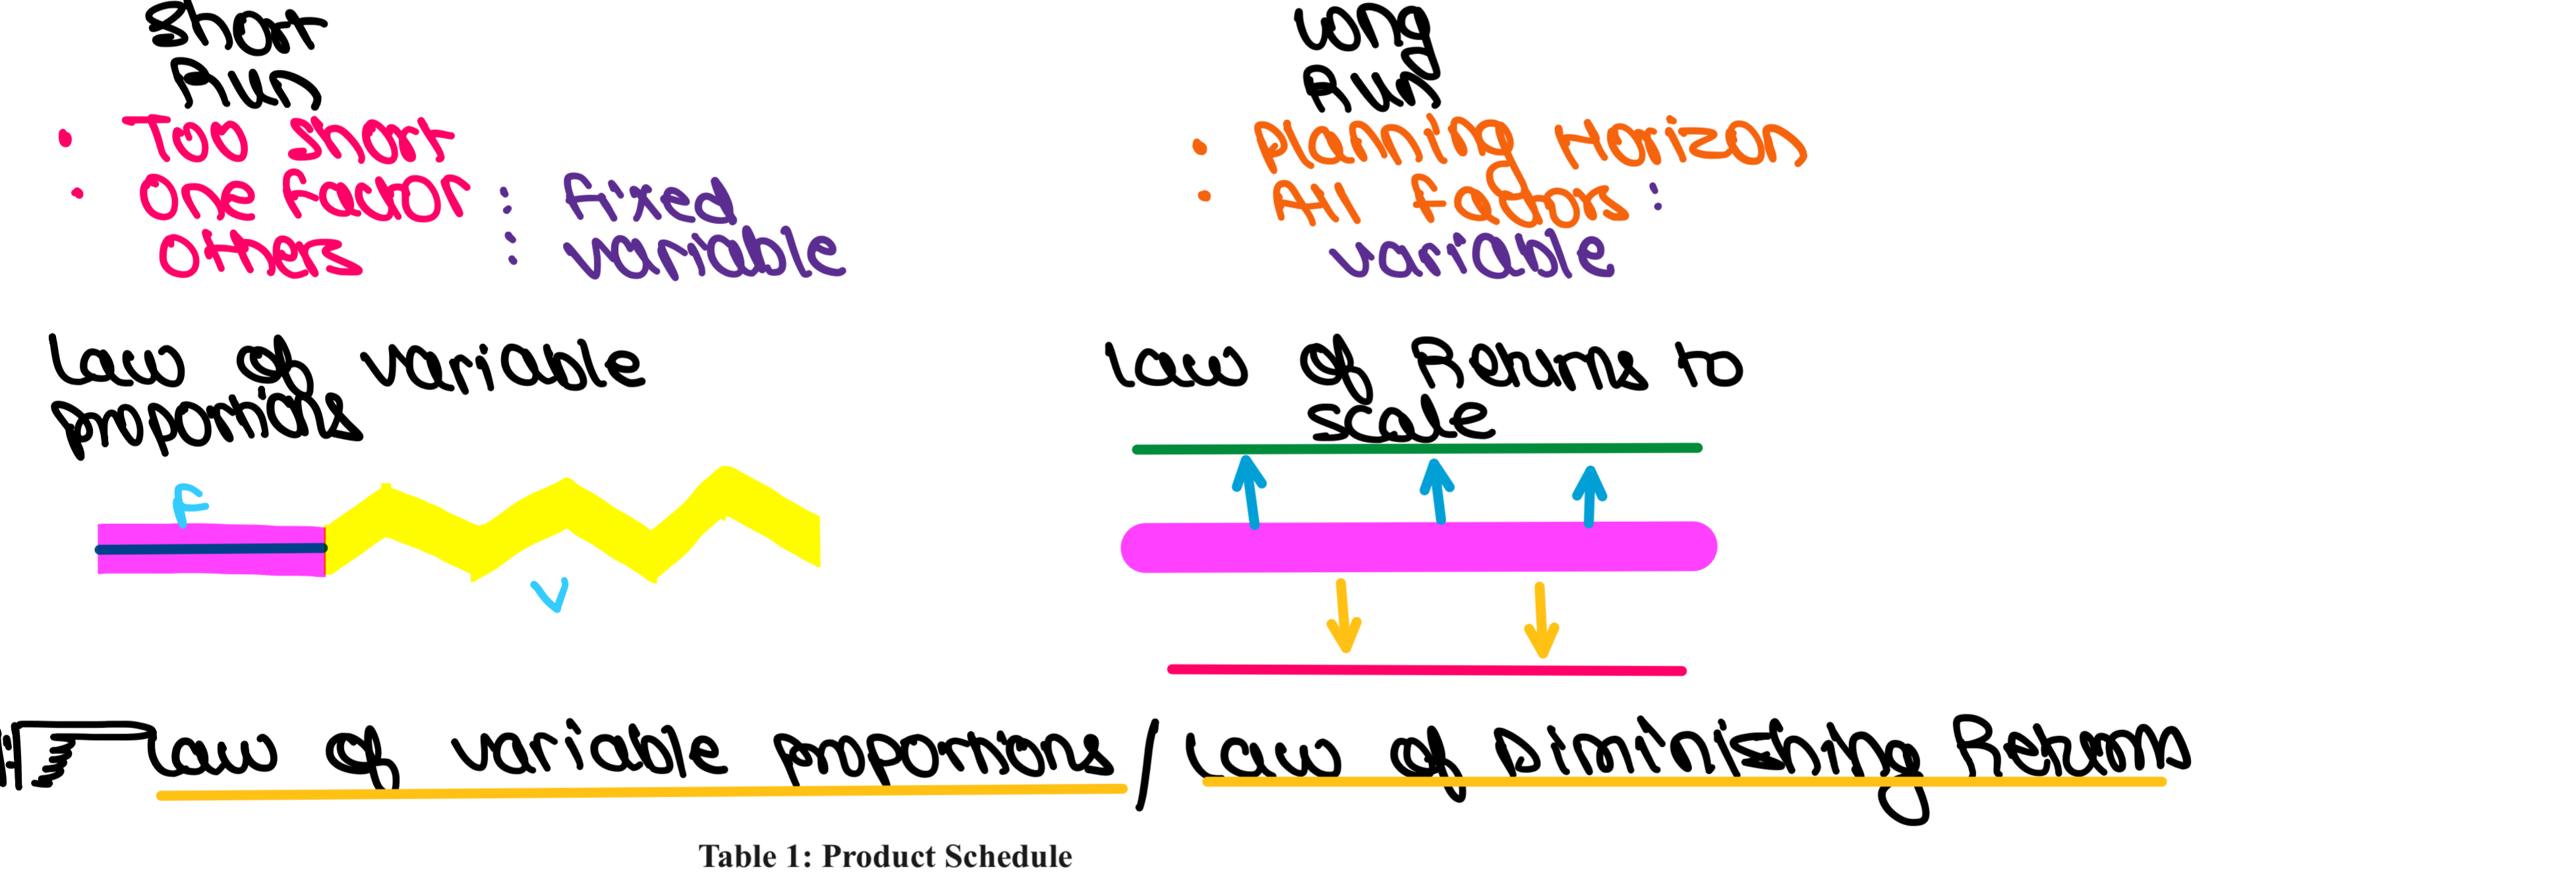 Short
Run
• Too short
• One factor : fixed
others : variable
Law of variable
proportions
F
V
Long
Run
• Planning Horizon
• All factors :
variable
Law of Returns to
scale
Law of variable proportions / Law of Diminishing Returns
Table 1: Product Schedule